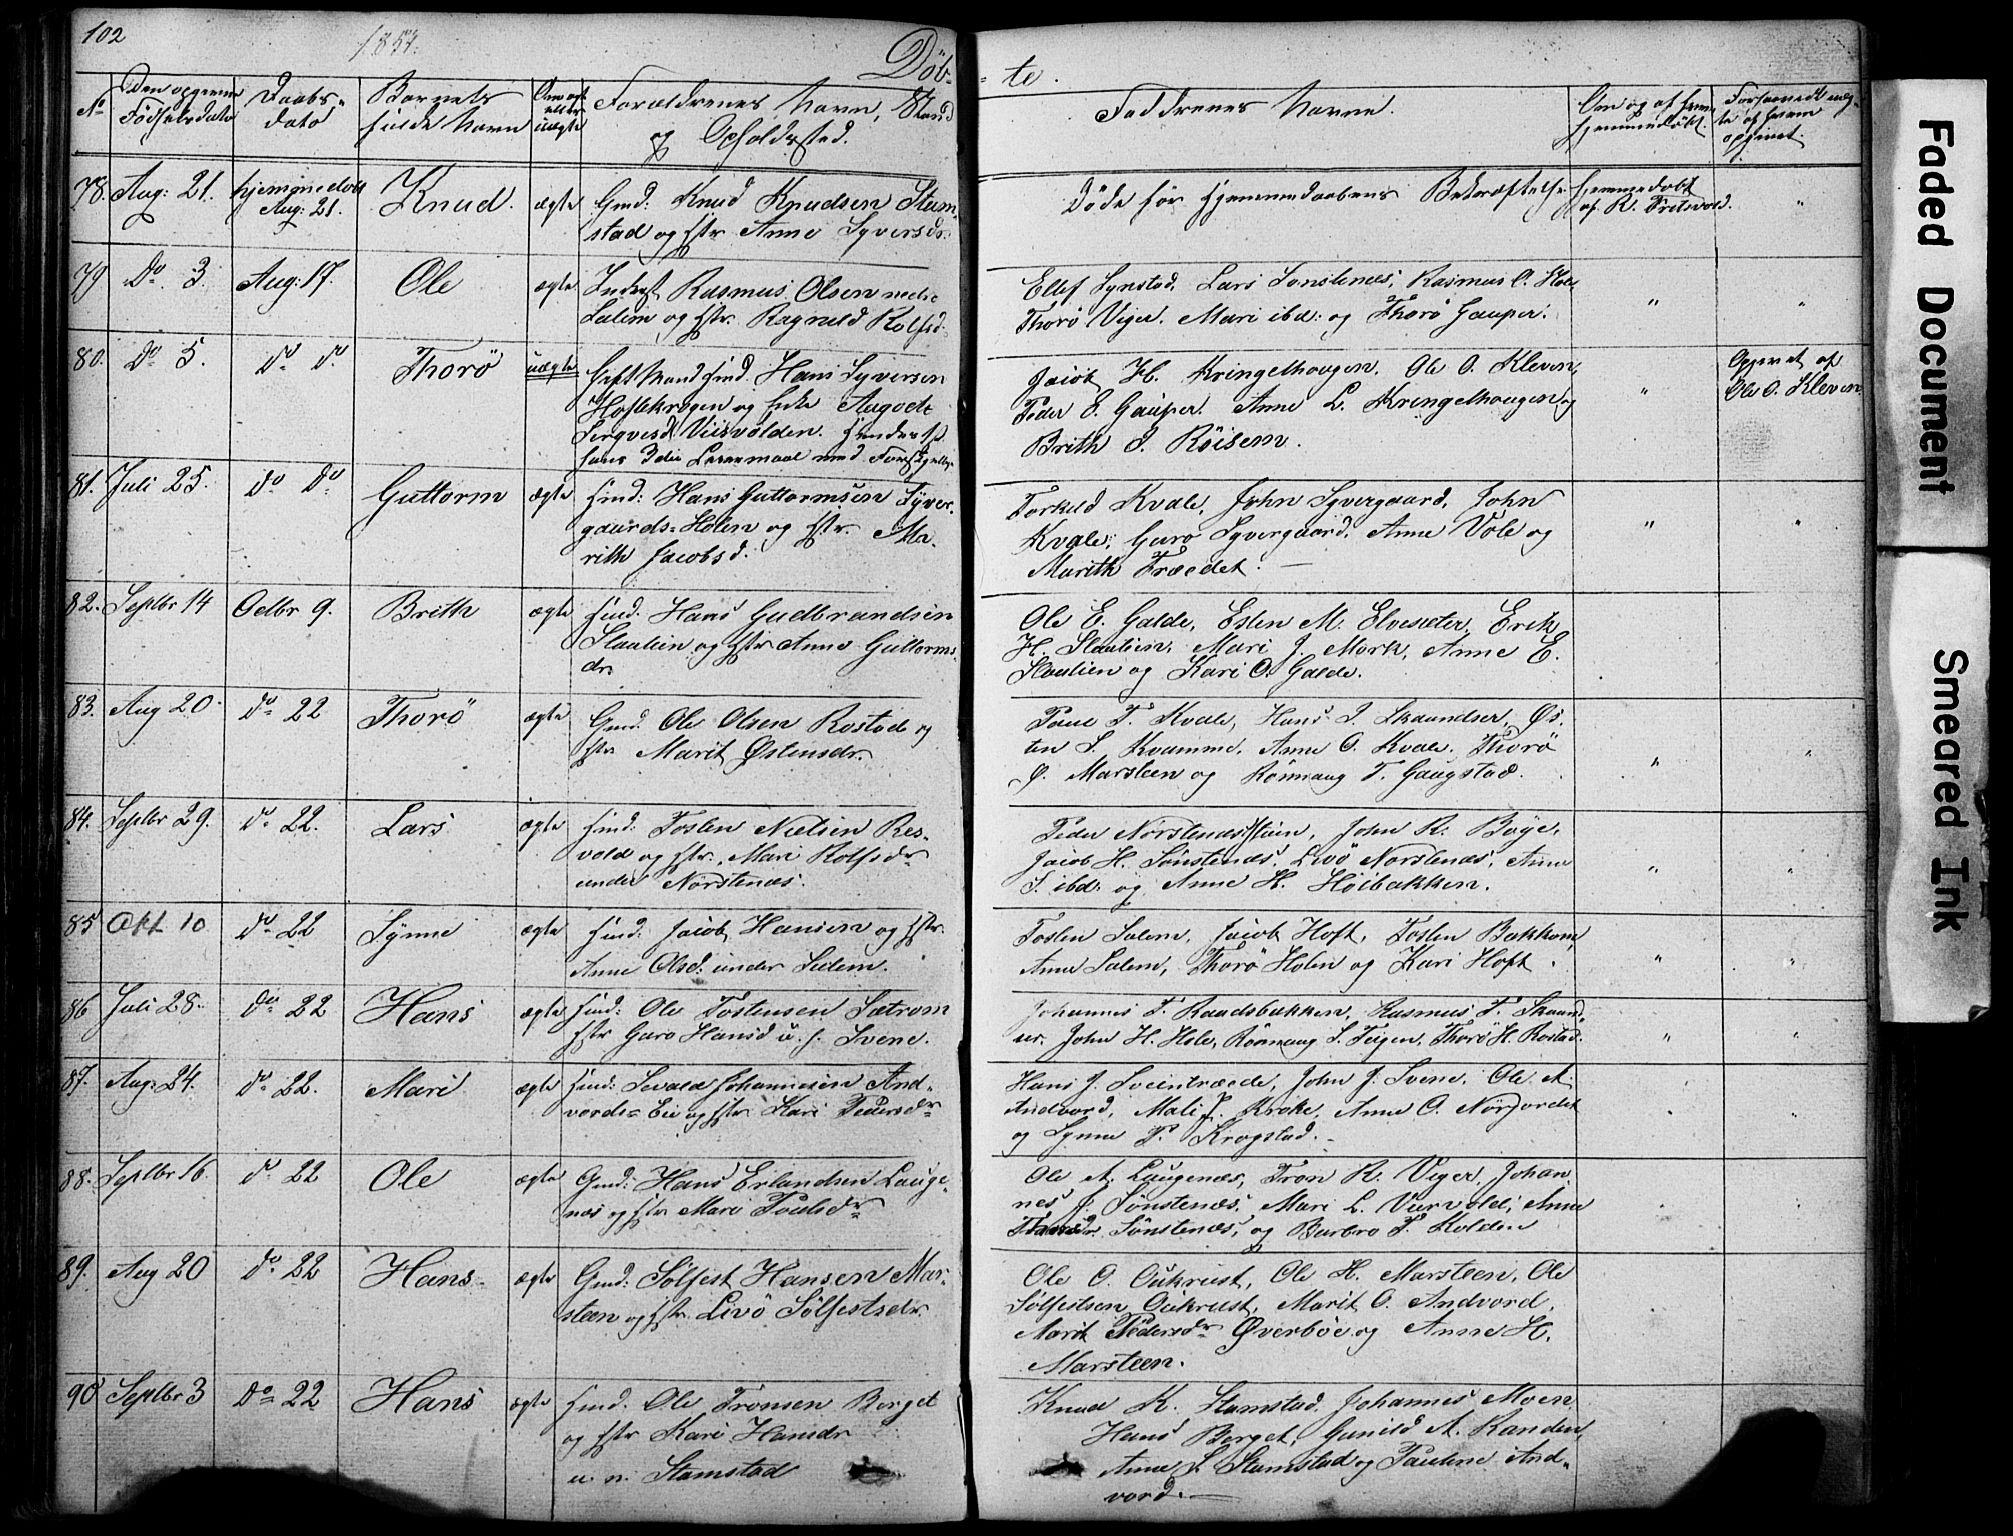 102
1854.
Döb-
te.
No
Den opgivne Fødselsdato
Daabs-dato
Barnets fulde Navn
Om ægte eller uægte
Forældrenes Navn, Stand og Opholdssted.
Faddrenes Navne.
Om og af hvem hjemmedöbt.
opgivet.
78. Aug: 21. hjemmedöbt Aug: 21. Knud. ægte Gmd: Knud Knudsen Stam-
stad og Hstr Anne Syversdr.
Döde før Hjemmedaabens Bekræftelse hjemmedöbt af K. "
79 Do 3. Aug: 17. Ole ægte Inderst Rasmus Olsen nedre
Sulem og Hstr. Ragnild Rolfsd.
Ellef Synstad, Lars Sönstenæs, Rasmus O.
Thorö Viger. Mari ibd: og Thorö Gauper. " "
80. Do 5. do do Thorö uægte Gift Mand Hmd. Hans Syversen
og Pike
Viisvolden.
hans 3die Leiermaal med
Jacob H. Kringelhougen, Ole O. Kleven,
Peder E. Gauper. Anne L. Kringelhougen og
Brith I. Röisem. " Opgivet af
Ole O. Kleven
81. Juli 25. do do Guttorm ægte Hmd: Hans Guttormsen Syver-
gaards-Holen og Hstr. Ma-
rith Jacobsd.
Torkild Kvale, John Syvergaard, John
Kvale, Guro Syvergaard, Anne Vole og
Marith Træedet. " "
82. Septbr 14 Octbr 9. Brith ægte Hmd: Hans Gudbrandsen
Slaalien og Hstr Anne Guttorms-
dr.
Ole E. Galde, Esten M. Elvesæter, Erik
H. Slaalien, Mari J. Mork, Anne E.
Slaalien og Kari O. Galde.
83. Aug 20. do 22 Thorö ægte Gmd. Ole Olsen Rostad og
Hstr Marit Østensdr.
Poul T. Kvale, Hans I. Skaandser, Øs-
ten S. Kvamme, Anne O. Kvale. Thorö
Ø. Marsteen og Rönnaug T. Gaugstad. " "
84. Septbr 29. do 22. Lars ægte Hmd: Tosten Nielsen Res-
vold og Hstr. Mari Rolfsdr
under Norstenæs.
Peder John R. Böye,
Jacob H. Sönstenæs, Livö Norstenæs, Anne
S. ibd: og Anne H. Höibakken. " "
85 Okt 10 do 22 Synne ægte Hmd: Jacob Hansen og Hstr.
Anne Olsd. under Sulem.
Tosten Sulem, Jacob Hoft, Tosten Bakkom,
Anne Sulem, Thorö Holen og Kari Hoft. " "
86 Juli 28. do 22 Hans ægte Hmd: Ole Tostensen Sætrom
Hstr Guro Hansd u. f. Svene.
Johannes T. Raadsbakken, Rasmus T. Skaand-
ser. John H. Hole, Rönnaug S. Teigen, Thorö H. Rostad. " "
87. Aug: 24. do 22. Mari ægte Hmd: Sevald Johannesen And-
vords-Eie og Hstr Kari Pedersdr
Hans J. Sveintræede, John J. Svene, Ole A.
Andvord, Mali J. Kroke, Anne O. Nörjordet
og Synne P. Krogstad. "
88. Septbr 16 do 22 Ole ægte Gmd: Hans Erlandsen Lauge-
næs og Hstr Mari Poulsdr
Ole A. Laugenæs, Tron R. Viger, Johan-
nes J. Sönstenæs, Mari L. Viirvold, Anne
Sönstenæs, og Barbro P. Kolden
89. Aug 20 do 22 Hans ægte Gmd: Sölfest Hansen Mar-
steen og Hstr Livö Sölfestsdr.
Ole O. Oukrust, Ole H. Marsteen, Ole
Sölfestsen Oukrust, Marit O. Andvord.
Marit Pedersdr Øverböe og Anne H.
Marsteen.
90 Septbr 3 do 22 Hans ægte Hmd. Ole Tronsen Berget
og Hstr Kari Hansdr
u. n. Stamstad
Knud K. Stamstad. Johannes Moen,
Hans Berget, Gunild A. Randen,
Anne S. Stamstad og Pauline And-
vord.
Faded Document
Smeared Ink